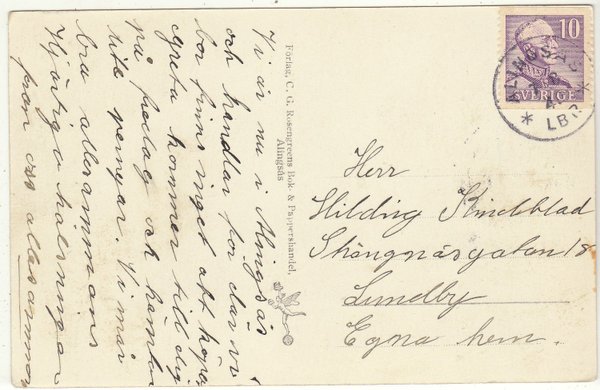 Vi är nu i Alingsås
och handlar för där vi
bor finns inget att köpa
Greta kommer till dig
på fredag och hämtar
lite pengar. Vi mår
bra allesammans
Hjärtiga hälsningar
från oss allesammans
Förlag, C. G. Rosengreens Bok- & Pappershandel,
Alingsås
10
SVERIGE
ALINGSÅS
LBR
Herr
Hilding Kindblad
Sköngnäsgatan 18
Lundby
Egna hem.